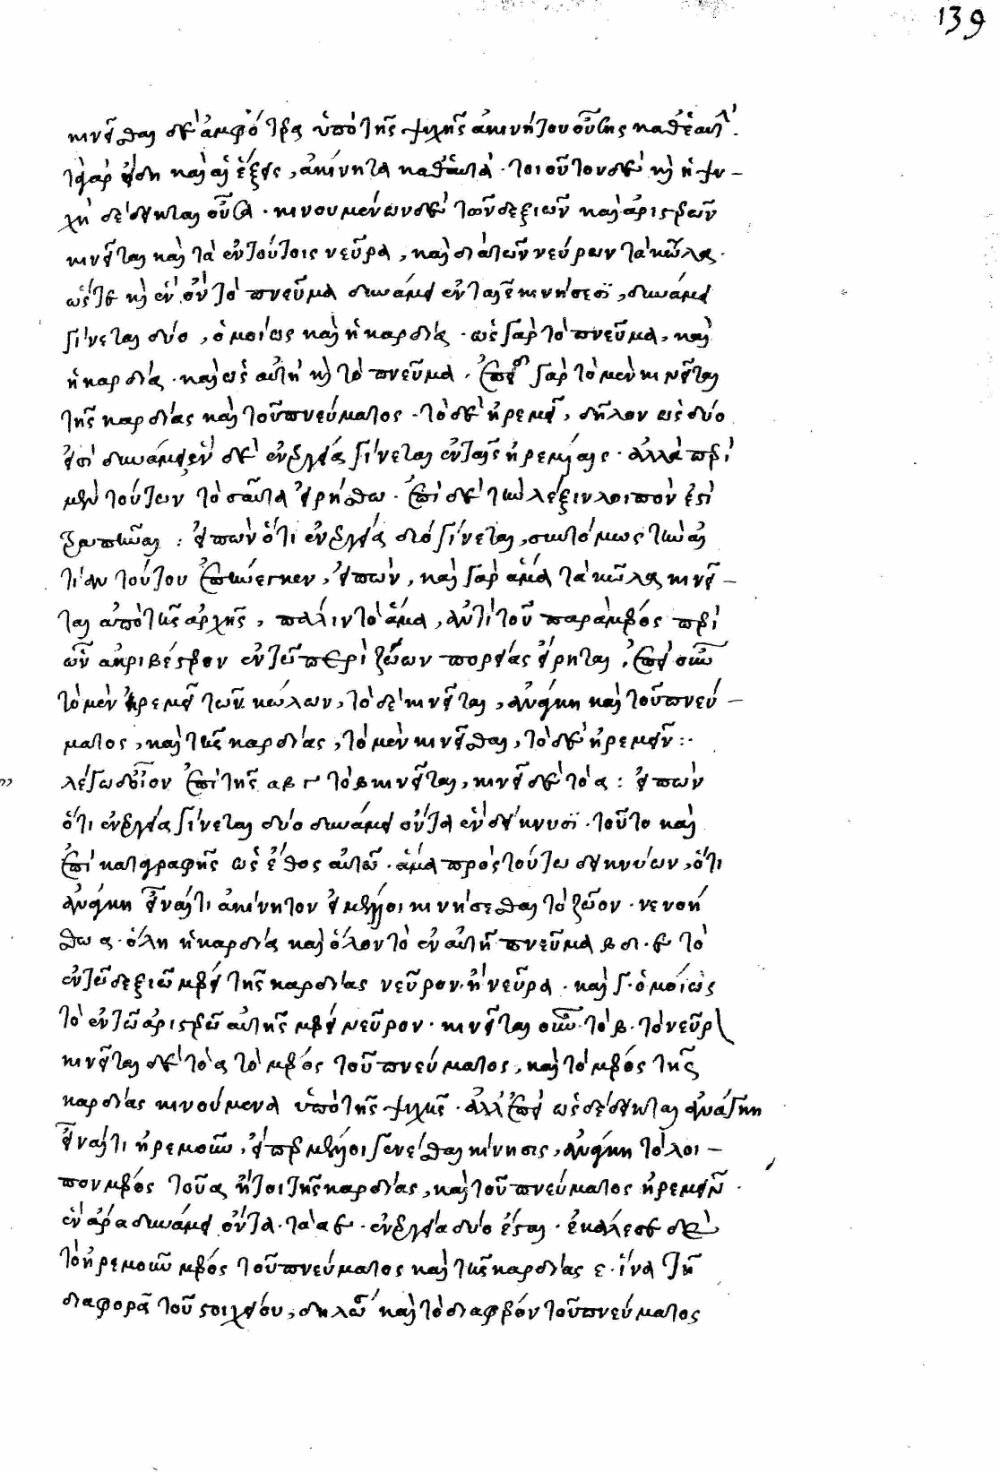 139
κινεῖσθαι δὲ ἀμφότερα ὑπὸ τῆς ψυχῆς ἀκινήτου οὔσης καθ' ἑαυτήν.
τί γὰρ εἴδη καὶ αἱ ἕξεις, ἀκίνητα καθ' αὑτά. τοιοῦτον δὲ καὶ ἡ ψυ-
χὴ δέδεικται οὖσα. κινουμένων δὲ τῶν δεξιῶν καὶ ἀριστερῶν
κινεῖται καὶ τὰ ἐν τούτοις νεῦρα, καὶ διὰ τῶν νεύρων τὰ κῶλα.
ὥστε καὶ ἓν ὂν τὸ πνεῦμα δυνάμει ἐν ταῖς κινήσεσι, δυνάμει
γίνεται δύο, ὁμοίως καὶ ἡ καρδία. ὡς γὰρ τὸ πνεῦμα, καὶ
ἡ καρδία. καὶ ὡς αὐτὴ καὶ τὸ πνεῦμα. ἐπεὶ γὰρ τὸ μὲν κινεῖται
τῆς καρδίας καὶ τοῦ πνεύματος. τὸ δὲ ἠρεμεῖ, δῆλον ὡς δύο
εἰσὶ δυνάμει, ἓν δὲ ἐνεργείᾳ γίνεται ἐν ταῖς ἠρεμίαις. ἀλλὰ περὶ
μὲν τούτων τοσαῦτα εἰρήσθω. ἐπὶ δὲ τὴν λέξιν λοιπὸν ἐπι
: εἰπὼν ὅτι ἐνεργείᾳ δύο γίνεται, συντόμως τὴν αἰ
τίαν τούτου ἐπήνεγκεν, εἰπών, καὶ γὰρ ἅμα τὰ κῶλα κινεῖ-
ται ἀπὸ τῆς ἀρχῆς, πάλιν τὸ ἅμα, ἀντὶ τοῦ παρὰ μέρος περὶ
ὧν ἀκριβέστερον ἐν τῷ περὶ ζῴων πορείας εἴρηται, ἐπεὶ οὖν
τὸ μὲν ἠρεμεῖ τῶν κώλων, τὸ δὲ κινεῖται, ἀνάγκη καὶ τοῦ πνεύ-
ματος, καὶ τῆς καρδίας, τὸ μὲν κινεῖσθαι, τὸ δὲ ἠρεμεῖν:
λέγω δ' οἷον ἐπὶ τῆς αβγ τὸ β κινεῖται, κινεῖ δὲ τὸ α: εἰπὼν
ὅτι ἐνεργείᾳ γίνεται δύο δυνάμει ὄντα ἓν δείκνυσι. τοῦτο καὶ
ἐπὶ καταγραφῆς ὡς ἔθος αὐτῷ. ἅμα πρὸς τούτῳ δεικνύων, ὅτι
ἀνάγκη εἶναί τι ἀκίνητον εἰ μέλλοι κινήσεσθαι τὸ ζῷον. νενοή
σθω α. ὅλη ἡ καρδία καὶ ὅλον τὸ ἐν αὐτῇ πνεῦμα β δὲ τὸ
ἐν τῷ δεξιῷ μέρει τῆς καρδίας νεῦρον. ἢ νεῦρα. καὶ γ. ὁμοίως
τὸ ἐν τῷ ἀριστερῷ αὐτῆς μέρει νεῦρον. κινεῖται οὖν τὸ β. τὸ νεῦρον
κινεῖται δὲ τὸ α τὸ μέρος τοῦ πνεύματος, καὶ τὸ μέρος τῆς
καρδίας κινούμενα ὑπὸ τῆς ψυχῆς. ἀλλ' ἐπεὶ ὡς δέδεικται ἀνάγκη
εἶναί τι ἠρεμοῦν, εἴπερ μέλλοι γενέσθαι κίνησις, ἀνάγκη τὸ λοι-
πὸν μέρος τοῦ α ἤτοι τῆς καρδίας, καὶ τοῦ πνεύματος ἠρεμεῖν.
ἓν ἄρα δυνάμει ὄντα τὰ α. ἐνεργείᾳ δύο ἔσται. ἐκάλεσε δὲ
τὸ ἠρεμοῦν μέρος τοῦ πνεύματος καὶ τῆς καρδίας ε. ἵνα τῇ
διαφορᾷ τοῦ στοιχείου, δηλώσῃ καὶ τὸ διαφέρον τοῦ πνεύματος